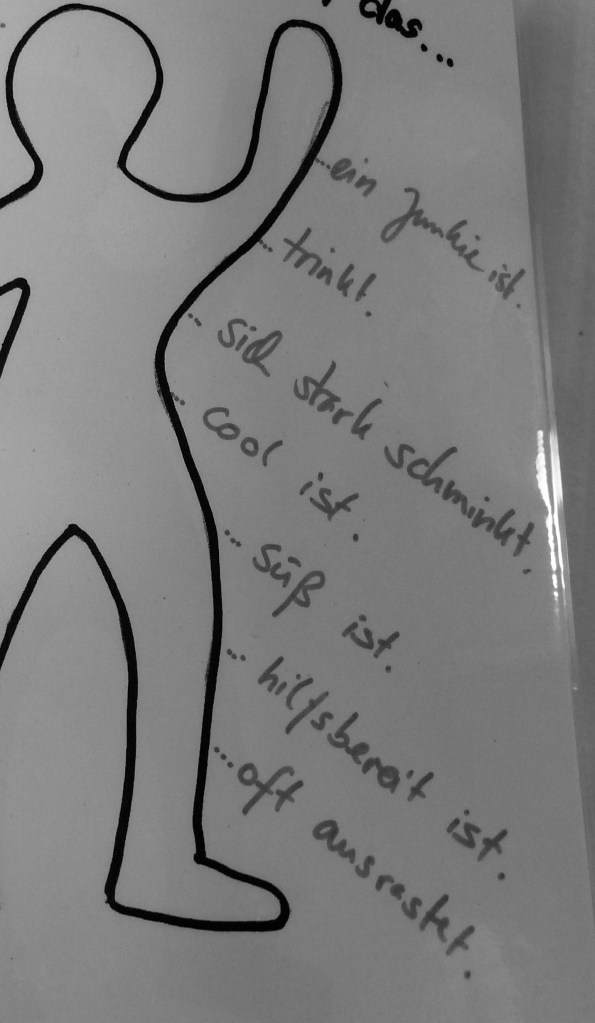 das...
...ein Junkie ist.
...trinkt.
...sich stark schminkt.
...cool ist.
...süß ist.
...hilfsbereit ist.
...oft ausrastet.